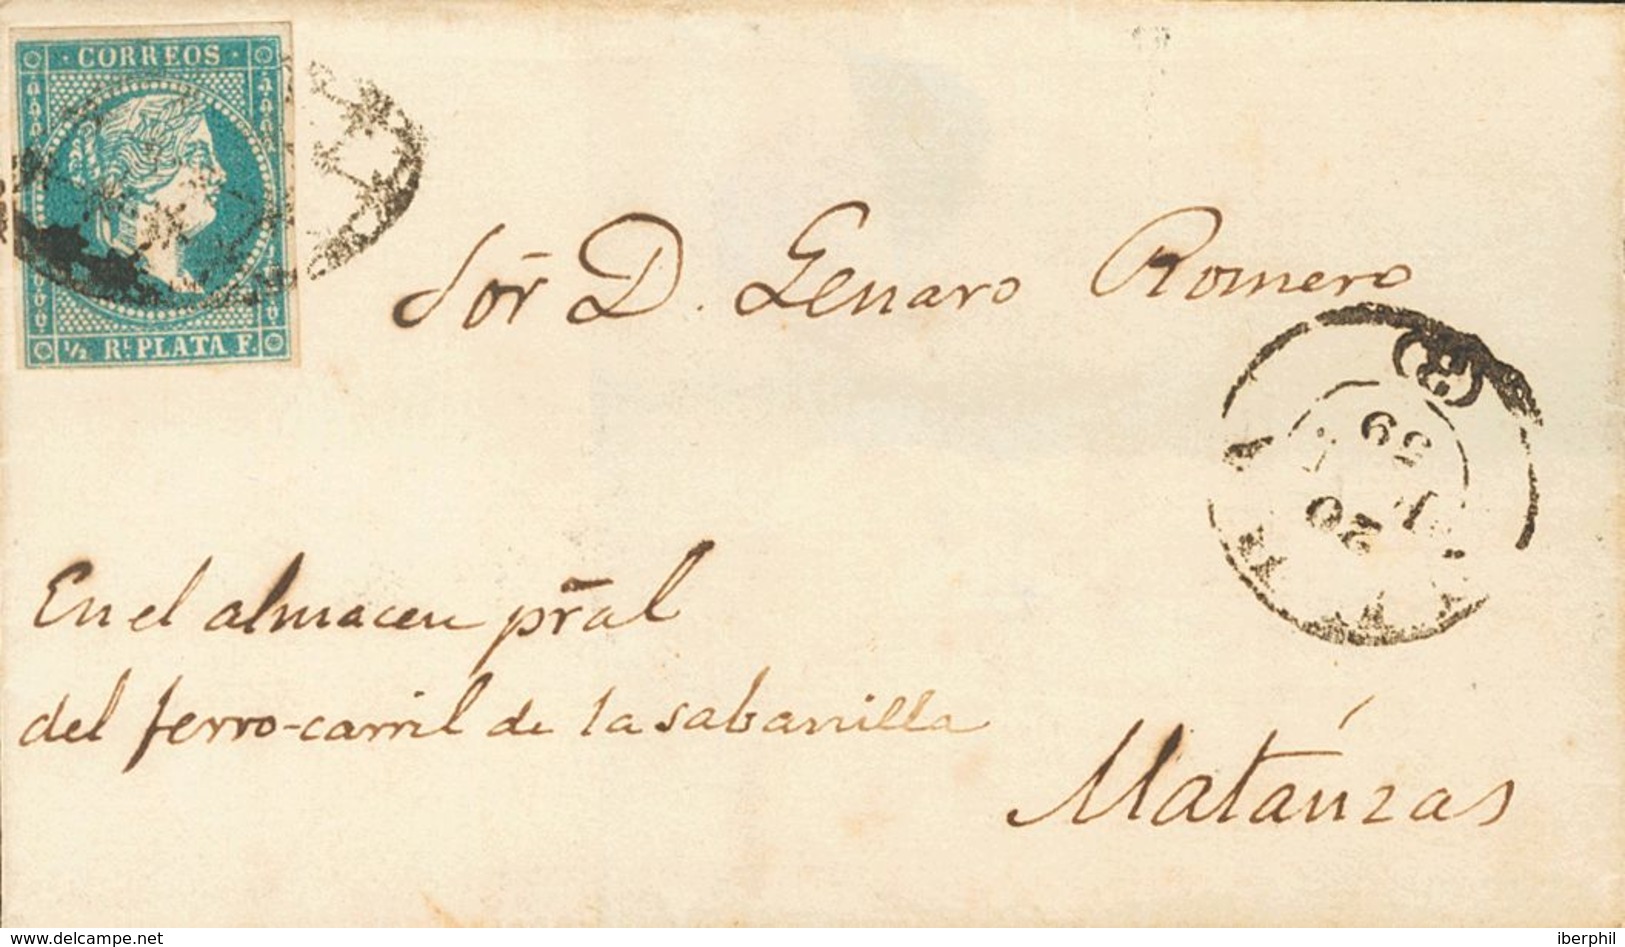 CORREOS
½ RL PLATA F.
Sor D. Genaro Romero
59
20
En el almacen pral
del ferro-carril de la sabanilla
Matánzas
www.delcampe.net
iberphil